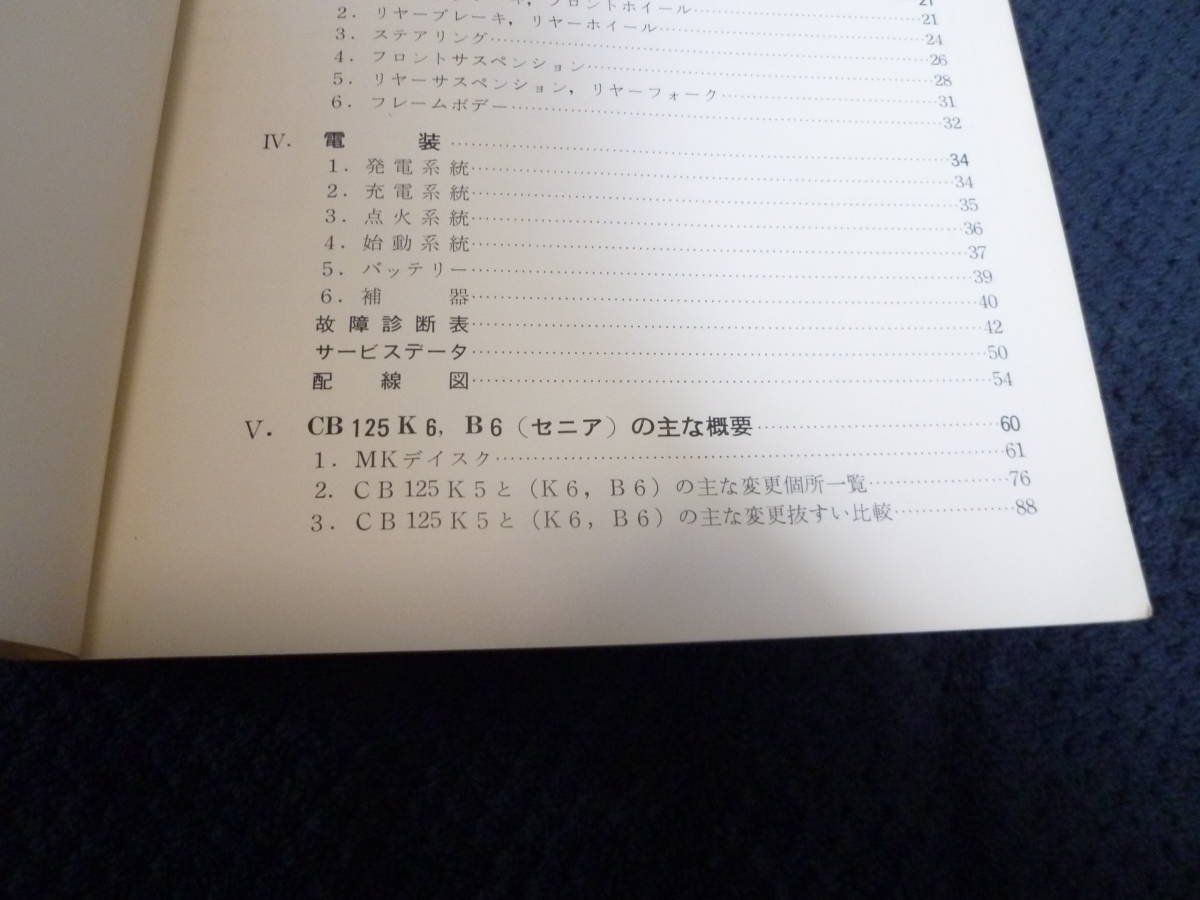 フロントホイール……21
2．リヤーブレーキ，リヤーホイール……21
3．ステアリング……24
4．フロントサスペンション……26
5．リヤーサスペンション，リヤーフォーク……28
6．フレームボデー……31
32
Ⅳ．電装……34
1．発電系統……34
2．充電系統……35
3．点火系統……36
4．始動系統……37
5．バッテリー……39
6．補器……40
故障診断表……42
サービスデータ……50
配線図……54
Ⅴ．CB125K6，B6（セニア）の主な概要……60
1．MKデイスク……61
2．CB125K5と（K6，B6）の主な変更個所一覧……76
3．CB125K5と（K6，B6）の主な変更抜すい比較……88